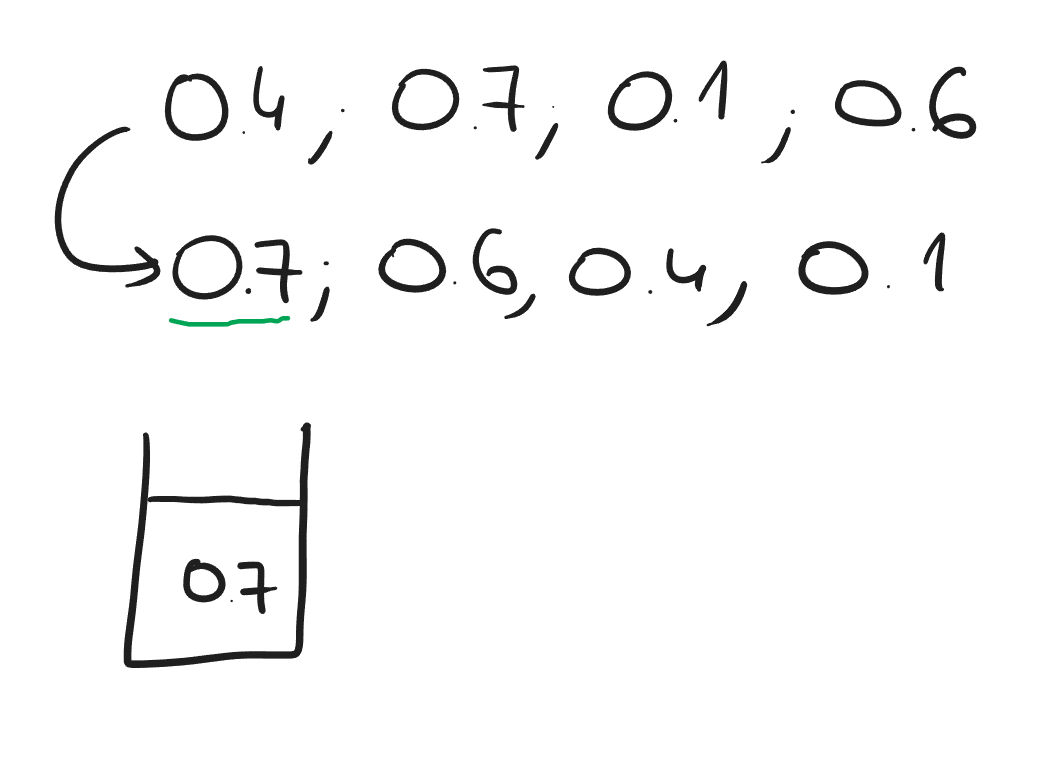 0.4; 0.7; 0.1; 0.6
0.7; 0.6, 0.4, 0.1
0.7